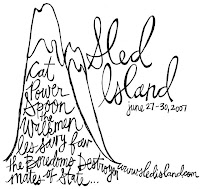 Sled
Island
june 27-30, 2007
Cat
Power
Spoon
the
Walkmen
les savy fav
the Boredoms Destroyer
mates of State...
www.sledisland.com